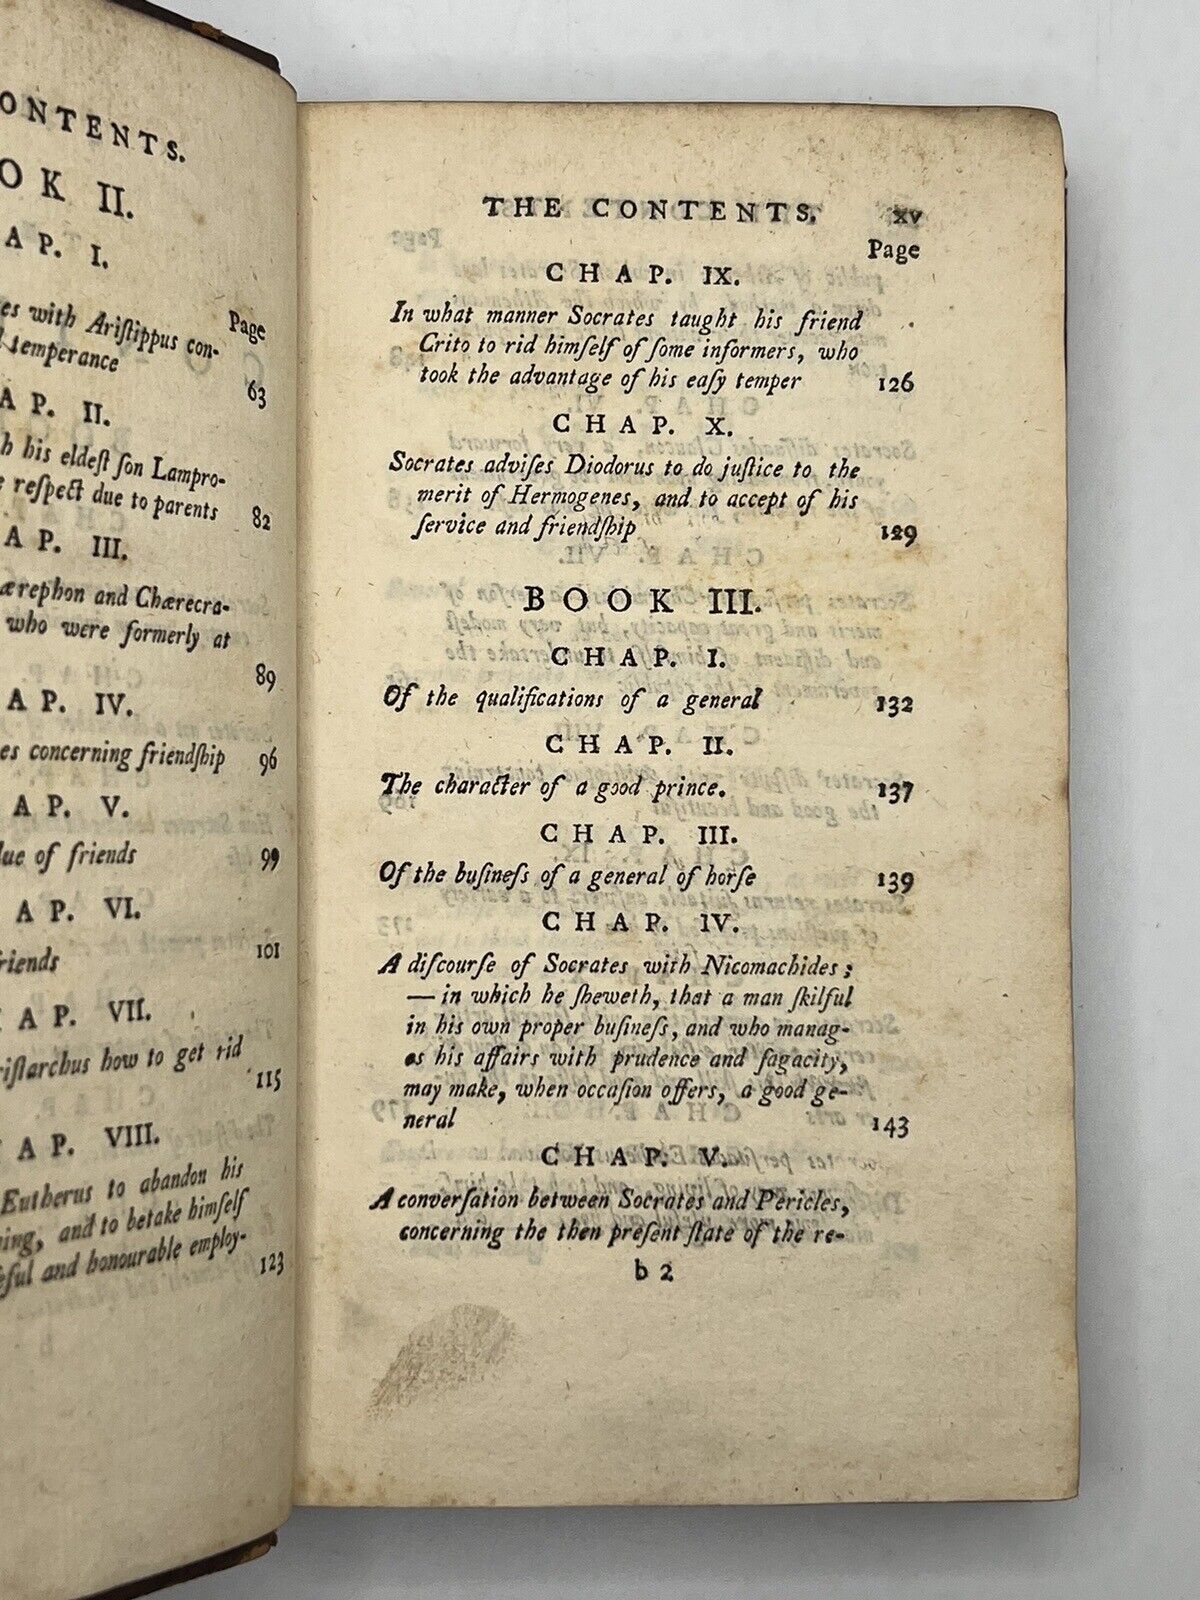 ONTENTS.
OK II.
AP. I.
es with Ariſtippus con-
temperance
Page
63
AP. II.
h his eldeſt ſon Lampro-
reſpect due to parents 82
AP. III.
ærephon and Chærecra-
who were formerly at
89
AP. IV.
es concerning friendſhip 96
AP. V.
lue of friends 99
AP. VI.
friends 101
AP. VII.
riſtarchus how to get rid
115
AP. VIII.
Eutherus to abandon his
ning, and to betake himſelf
eful and honourable employ-
123
THE CONTENTS. xv
Page
CHAP. IX.
In what manner Socrates taught his friend
Crito to rid himſelf of ſome informers, who
took the advantage of his eaſy temper 126
CHAP. X.
Socrates adviſes Diodorus to do juſtice to the
merit of Hermogenes, and to accept of his
ſervice and friendſhip 129
BOOK III.
CHAP. I.
Of the qualifications of a general 132
CHAP. II.
The character of a good prince. 137
CHAP. III.
Of the buſineſs of a general of horſe 139
CHAP. IV.
A diſcourſe of Socrates with Nicomachides;
— in which he ſheweth, that a man ſkilful
in his own proper buſineſs, and who manag-
es his affairs with prudence and ſagacity,
may make, when occaſion offers, a good ge-
neral 143
CHAP. V.
A converſation between Socrates and Pericles,
concerning the then preſent ſtate of the re-
b 2